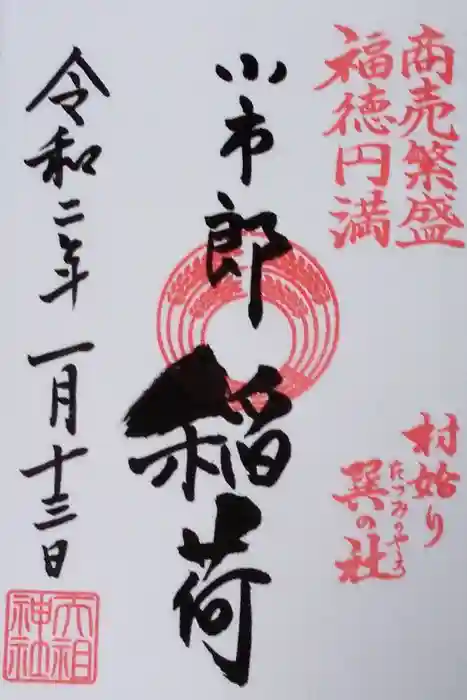 商売繁盛
福徳円満
村始り
巽の社
たつみのやしろ
小市郎稲荷
令和二年一月十三日
大祖
神社